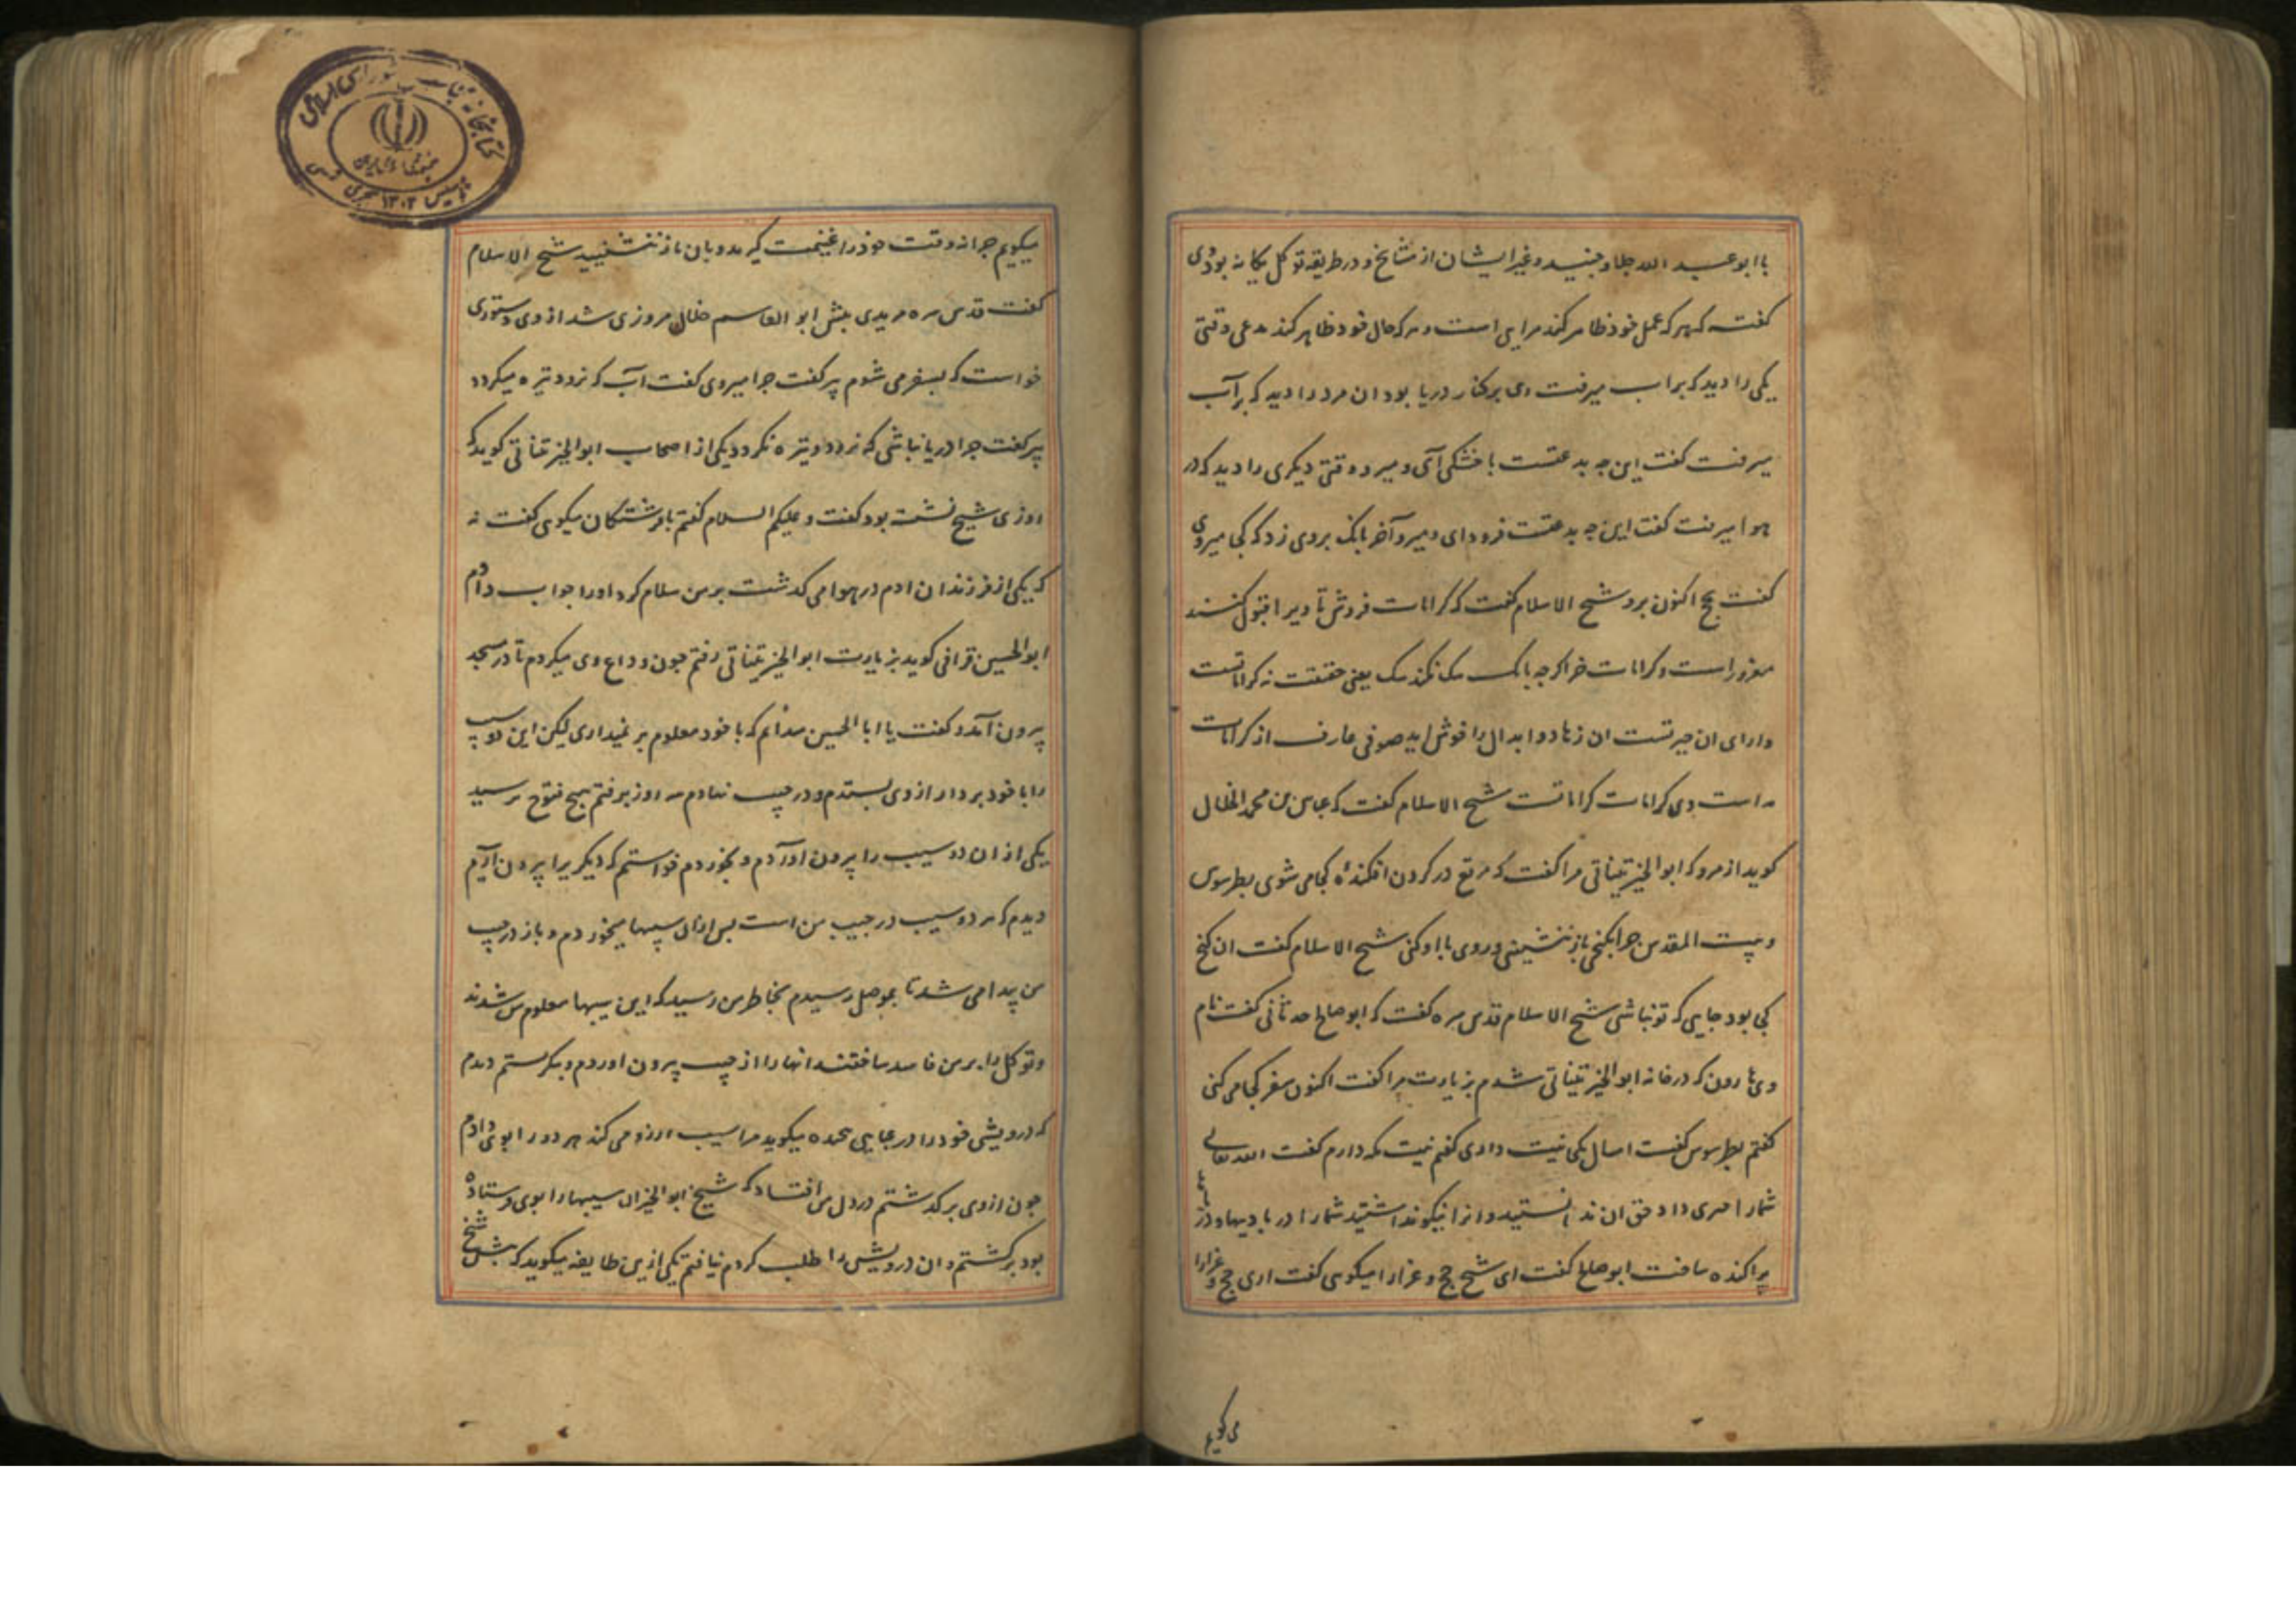 با ابو عبد الله جلا و جنید و غیر ایشان از مشایخ و در طریقه توکل یکانه بود وی
کفته که هر که عمل خود ظاهر کند مرایی است و هر که حال خود ظاهر کند مدعی وقتی
یکی را دید که بر اب میرفت وی بر کنار دریا بود ان مرد را دید که بر آب
میرفت کفت این چه بدعتست با خشکی آی و میرو وقتی دیکری را دید که در
هوا میرفت کفت این چه بدعتست فرود ای و میرو آخر بانک بروی زد که کجا میروی
کفت بحج اکنون برو شیخ الاسلام کفت که کرامات فروش تا ویرا قبول کنند
مغرور است و کرامات خر اکر چه بانک سک نکند سک یعنی حقیقت نه کراماتست
ورای ان چیزتست ان زهاد و ابدال را خوش اید صوفی عارف از کرامات
مه است وی کرامات کراماتست شیخ الاسلام کفت که عباس بن محمد الخلال
کوید از مرو که ابو الخیر تیناتی مرا کفت که مرقع در کردن افکندهٔ کجا می شوی بطرسوس
و بیت المقدس چرا بکنجی باز ننشینی و روی با او کنی شیخ الاسلام کفت ان کنج
کی بود جایی که تو نباشی شیخ الاسلام قدس سره کفت که ابو صالح حدثانی کفت نام
وی هارون که در خانه ابو الخیر تیناتی شدم بزیارت مرا کفت اکنون سفر کجا می کنی
کفتم بطرسوس کفت امسال یکی نیت داری کفتم نیت مکه دارم کفت الله تعالی
شما را حرمی داد حق ان ندانستید و انرا نیکو نداشتید شما را در بادیها و در
پراکنده ساخت ابو صالح کفت ای شیخ حج و غزا را میکویی کفت اری حج و غزا را
می کویم
میکویم چرا نه وقت خود را غنیمت کیرید و بان باز ننشینید شیخ الاسلام
کفت قدس سره مریدی پیش ابو القاسم خلال مروزی شد از وی دستوری
خواست که بسفر می شوم پیر کفت چرا میروی کفت آب که نرود تیره میکردد
پیر کفت چرا دریا نباشی که نرود و تیره نکردد یکی از اصحاب ابو الخیر تیناتی کوید که
روزی شیخ نشسته بود کفت و علیکم السلام کفتم با فرشتکان میکویی کفت نه
که یکی از فرزندان ادم در هوا می کذشت بر من سلام کرد او را جواب دادم
ابو الحسین قرافی کوید بزیارت ابو الخیر تیناتی رفتم چون وداع وی میکردم تا در مسجد
بیرون آمد و کفت یا ابا الحسین میدانم که با خود معلوم بر نمیداری لیکن این دو سیب
را با خود بردار از وی بستدم و در جیب نهادم سه روز برفتم هیچ فتوح نرسید
یکی از ان دو سیب را بیرون اوردم و بخوردم خواستم که دیکریرا بیرون آرم
دیدم که هر دو سیب در جیب من است پس ازان سیبها میخوردم و باز در جیب
من پیدا می شد تا بموصل رسیدم بخاطر من رسید که این سیبها معلوم من شدند
و توکل را بر من فاسد ساختند انها را از جیب بیرون اوردم و بنکریستم دیدم
که درویشی خود را در عبایی پیچیده میکوید مرا سیب ارزو می کند هر دو را بوی دادم
چون از وی بر کذشتم در دل من افتاد که شیخ ابو الخیر ان سیبها را بوی فرستاده
بود بر کشتم و ان درویش را طلب کردم نیافتم یکی ازین طایفه میکوید که پیش شیخ
کتابخانه مجلس شورای اسلامی
جمهوری اسلامی ایران
تاسیس ۱۳۰۲ هجری شمسی